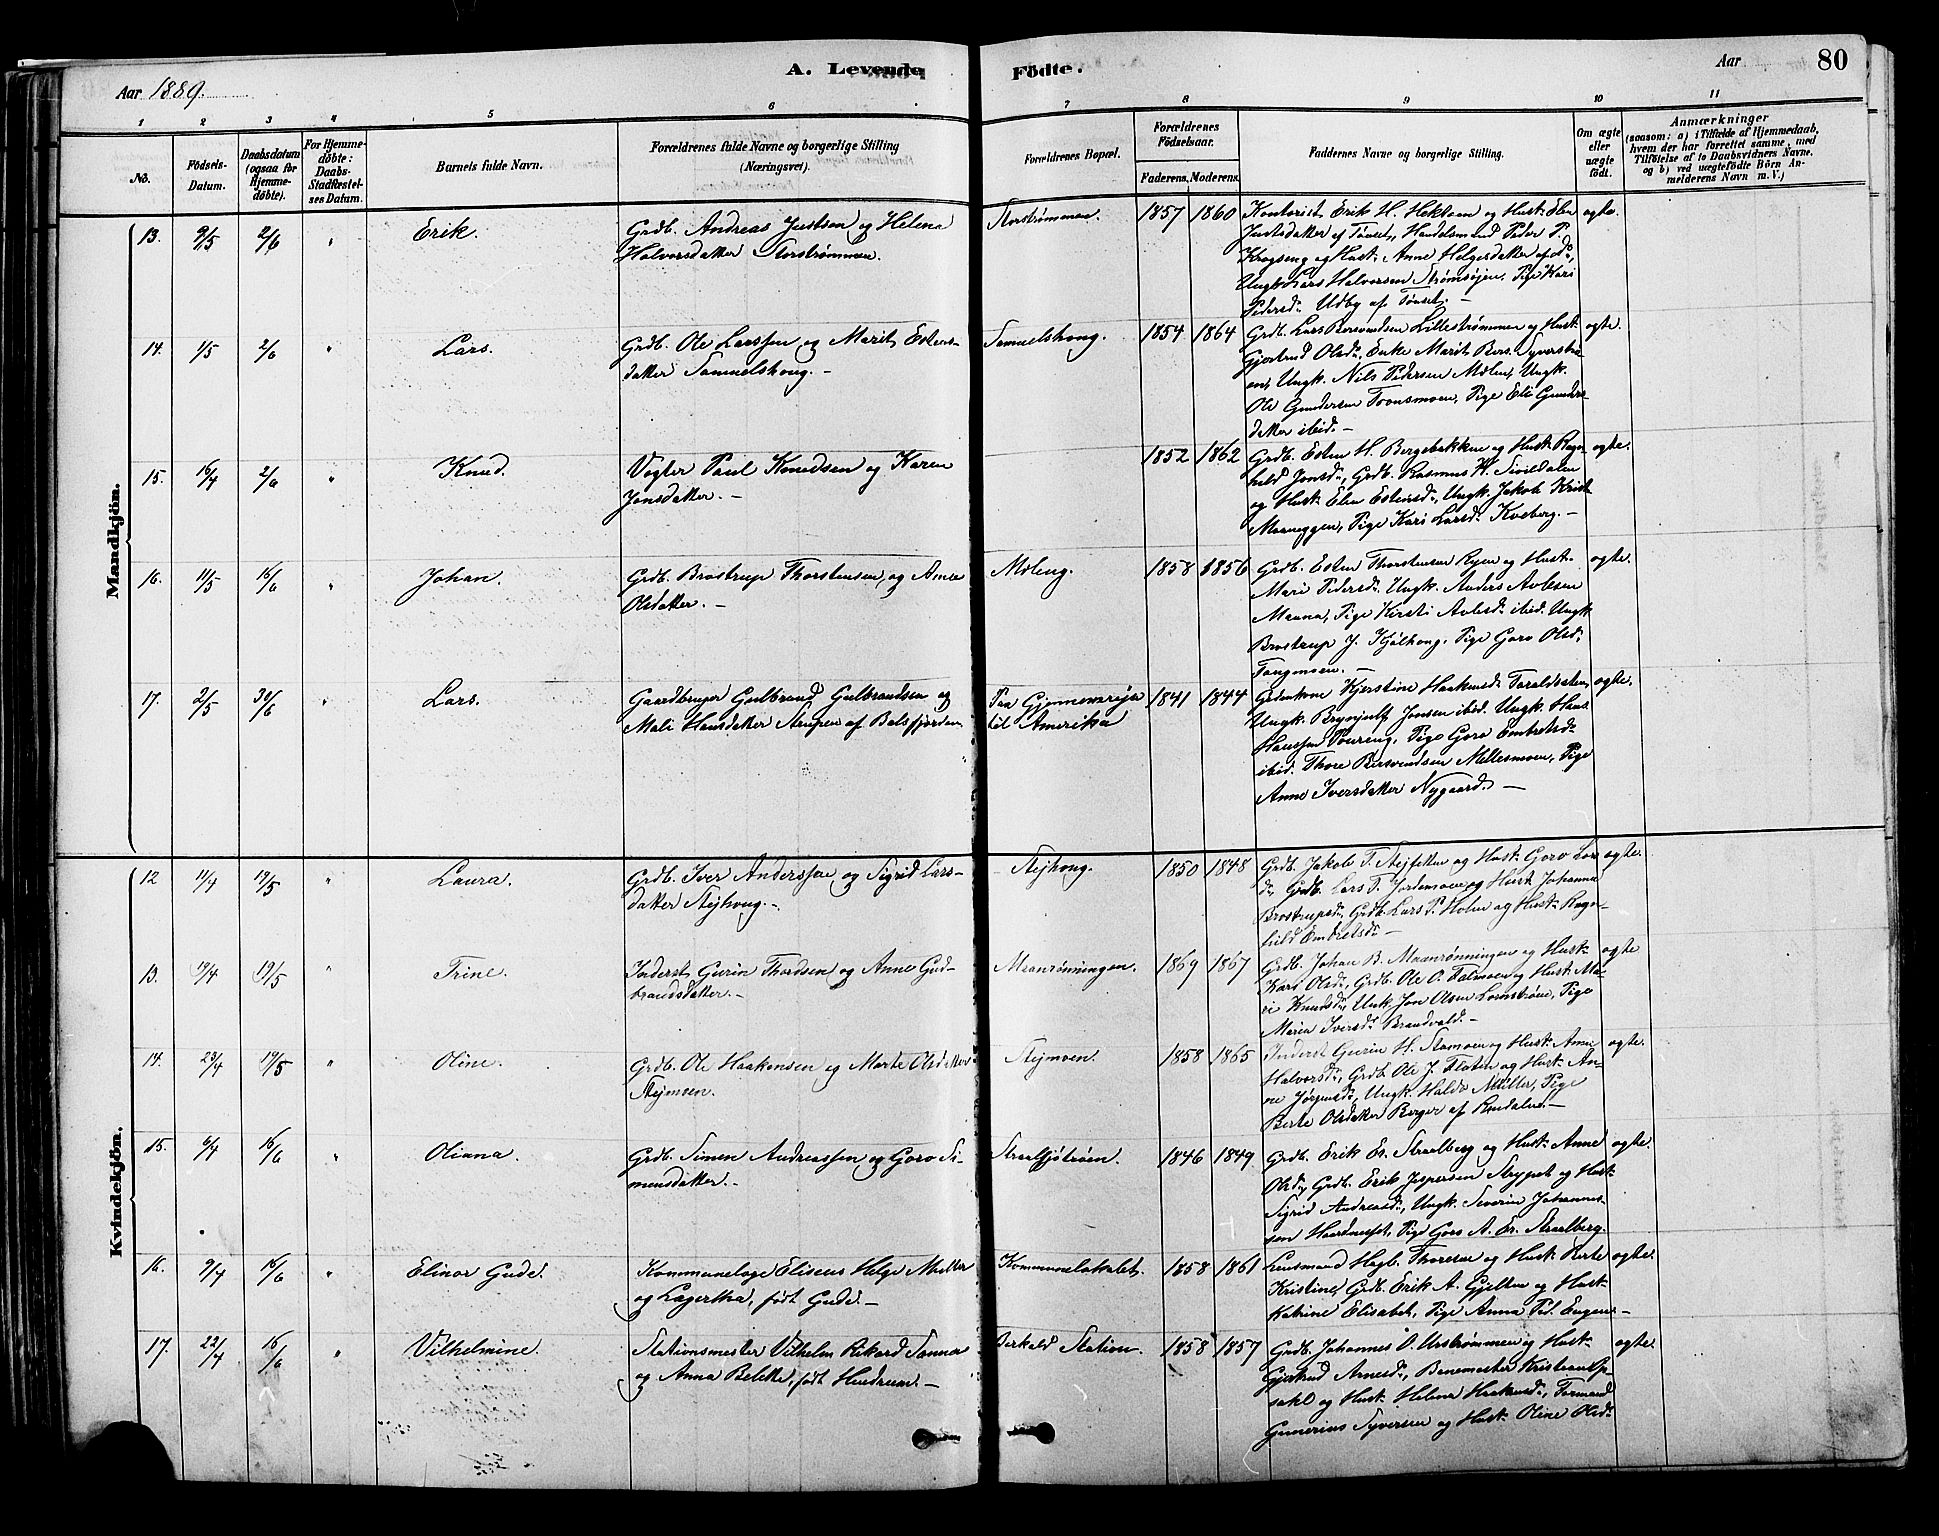 A. Levende Födte.
Aar 1889.
Aar 80
1 2 3 4 5 6 7 8 9 10 11
No.
Födsels-
Datum.
Daabsdatum
(ogsaa for
Hjemme-
döbte).
For Hjemme-
döbte:
Daabs-
Stadfæstel-
ses Datum.
Barnets fulde Navn.
Forældrenes fulde Navne og borgerlige Stilling
(Næringsvei).
Forældrenes Bopæl.
Forældrenes
Födselsaar.
Faderens. Moderens.
Faddernes Navne og borgerlige Stilling.
Om ægte
eller
uægte
födt.
Anmærkninger
(saasom: a) i Tilfælde af Hjemmedaab,
hvem der har forrettet samme, med
Tilföielse af to Daabsvidners Navne,
og b) ved uægtefödte Börn An-
melderens Navn m. V.)
Mandkjön.
13. 9/5 2/6 " Erik.
Grdb. Andreas Justsen og Helena
Halvorsdatter Storstrømmen.
Storstrømmen. 1857 1860
Kontorist Erik H. Hektoen og Hust: Elen
Justsdatter af Tønset, Handelsmand Peder P.
Krogseng og Hust: Anne Helgesdatter af do,
Ungk. Lars Halvorsen Strømsøjen, Pige Kari
Pedersd: Udby af Tønset. —
ægte.
14. 1/5 2/6 " Lars.
Grdb. Ole Larssen og Marit Estens-
datter Samuelshoug. —
Samuelshoug. 1854 1864
Grdb. Lars Bersvendsen Lillestrømmen og Hust:
Gjertrud Olsd:, Enke Marit Bers. Syverstrø-
en, Ungk. Nils Pedersen Mølen, Ungk.
Ole Gundersen Tronsmoen, Pige Eli Gunders-
datter ibid. —
ægte.
15. 16/4 2/6 " Knud.
Vogter Paul Knudsen og Karen
Jonsdatter. —
1852 1862
Grdb. Esten H. Bergebakken og Hust: Ragn-
hild Jonsd:, Grdb. Rasmus H. Sivildalen
og Hust: Elen Estensd:, Ungk. Jakob Krist.
Maaneggen, Pige Kari Larsd: Kveberg. —
ægte.
16. 11/5 16/6 " Johan.
Grdb. Brostrup Thorstensen og Anne
Olsdatter. —
Møleng. 1858 1856
Grdb. Esten Thorstensen Ryen og Hust:
Mari Pedersd:, Ungk. Anders Avlesen
Mauna, Pige Kirsti Avlesd: ibid. Ungk.
Brostrup J. Kjølhoug, Pige Goro Olsd:
Tangmoen. —
ægte.
17. 2/5 30/6 " Lars.
Gaardbruger Gulbrand Gulbrandsen og
Mali Hansdatter Strupen af Balsfjorden
Paa Gjennemrejse
til Amerika
1841 1844
Gdmkone Kjerstine Haakensd: Taraldssteen,
Ungk. Brynjulf Jonsen ibid. Ungk. Hans
Hanssen Toureng, Pige Goro Embretsd:
ibid. Thore Bersvendsen Mellesmoen, Pige
Anne Iversdatter Nygaard. —
ægte.
Kvindekjön.
12 11/4 19/5 " Laura.
Grdb. Iver Anderssen og Sigrid Lars-
datter Stejhoug. —
Stejhoug. 1850 1848
Grdb. Jakob T. Stejfetten og Hust: Goro Lars
d:, Grdb. Lars T. Jordemoen og Hust: Johanna
Brostrupsd:, Grdb. Lars P. Holm og Hust: Ragn-
hild Embretsd:
ægte.
13. 19/4 19/5 " Trine.
Inderst Gurin Thordsen og Anne Gud-
brandsdatter. —
Maanrønningen. 1869 1867
Grdb. Johan B. Maanrønningen og Hust:
Kari Olsd:, Grdb. Ole O. Folmoen og Hust: Ma-
ri Knudsd:, Ungk. Jon Olsen Lomstrøen, Pige
Maria Iversd: Brandvold. —
ægte
14. 23/4 19/5 " Oline.
Grdb. Ole Haakensen og Marte Olsdatter
Stejmoen.
Stejmoen. 1858 1865
Inderst Gurin H. Stamoen og Hust: Anne
Halvorsd:, Grdb. Ole J. Floten og Hust: An-
ne Jørgensd:, Ungk. Hald: Müller, Pige
Berte Olsdatter Berger af Rendalen. —
ægte.
15. 6/4 16/6 " Oliana.
Grdb. Simen Andreassen og Goro Si-
mensdatter. —
Straalsjøtrøen. 1846 1849
Grdb. Erik Er. Straalberg og Hust: Anne
Olsd:, Grdb. Erik Jespersen Strypet og Hust:
Sigrid Andreasd:, Ungk. Severin Johannes-
sen Haardneset, Pige Goro A. Er. Straalberg.
ægte.
16. 9/4 16/6 " Elinor Gude.
Kommunelæge Eliseus Helge Müller
og Lagertha, født Gude. —
Kommunelokalet. 1858 1861
Lensmand Hagb. Thoresen og Hust: Berte
Kristine, Grdb. Erik A. Gjelten og Hust:
Katrine Elisabet, Pige Anna Pet. Eugene —
ægte.
17. 22/4 16/6 " Vilhelmine.
Stationsmester Vilhelm Rikard Sanne
og Anna Bekke, født Hindrum. —
Barkald Station. 1858 1857
Grdb. Johannes O. Urstrømmen og Hust:
Gjertrud Arnesd:, Banemester Kristian Op-
sahl og Hust: Helene Haakensd:, Formand
Gunerius Syversen og Hust: Oline Olsd:
ægte.